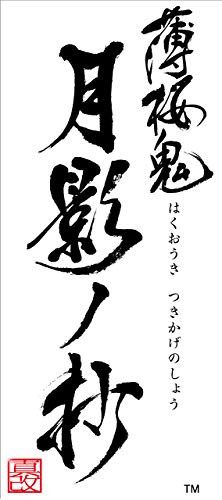 薄桜鬼
はくおうき つきかげのしょう
月影ノ抄
真改
TM